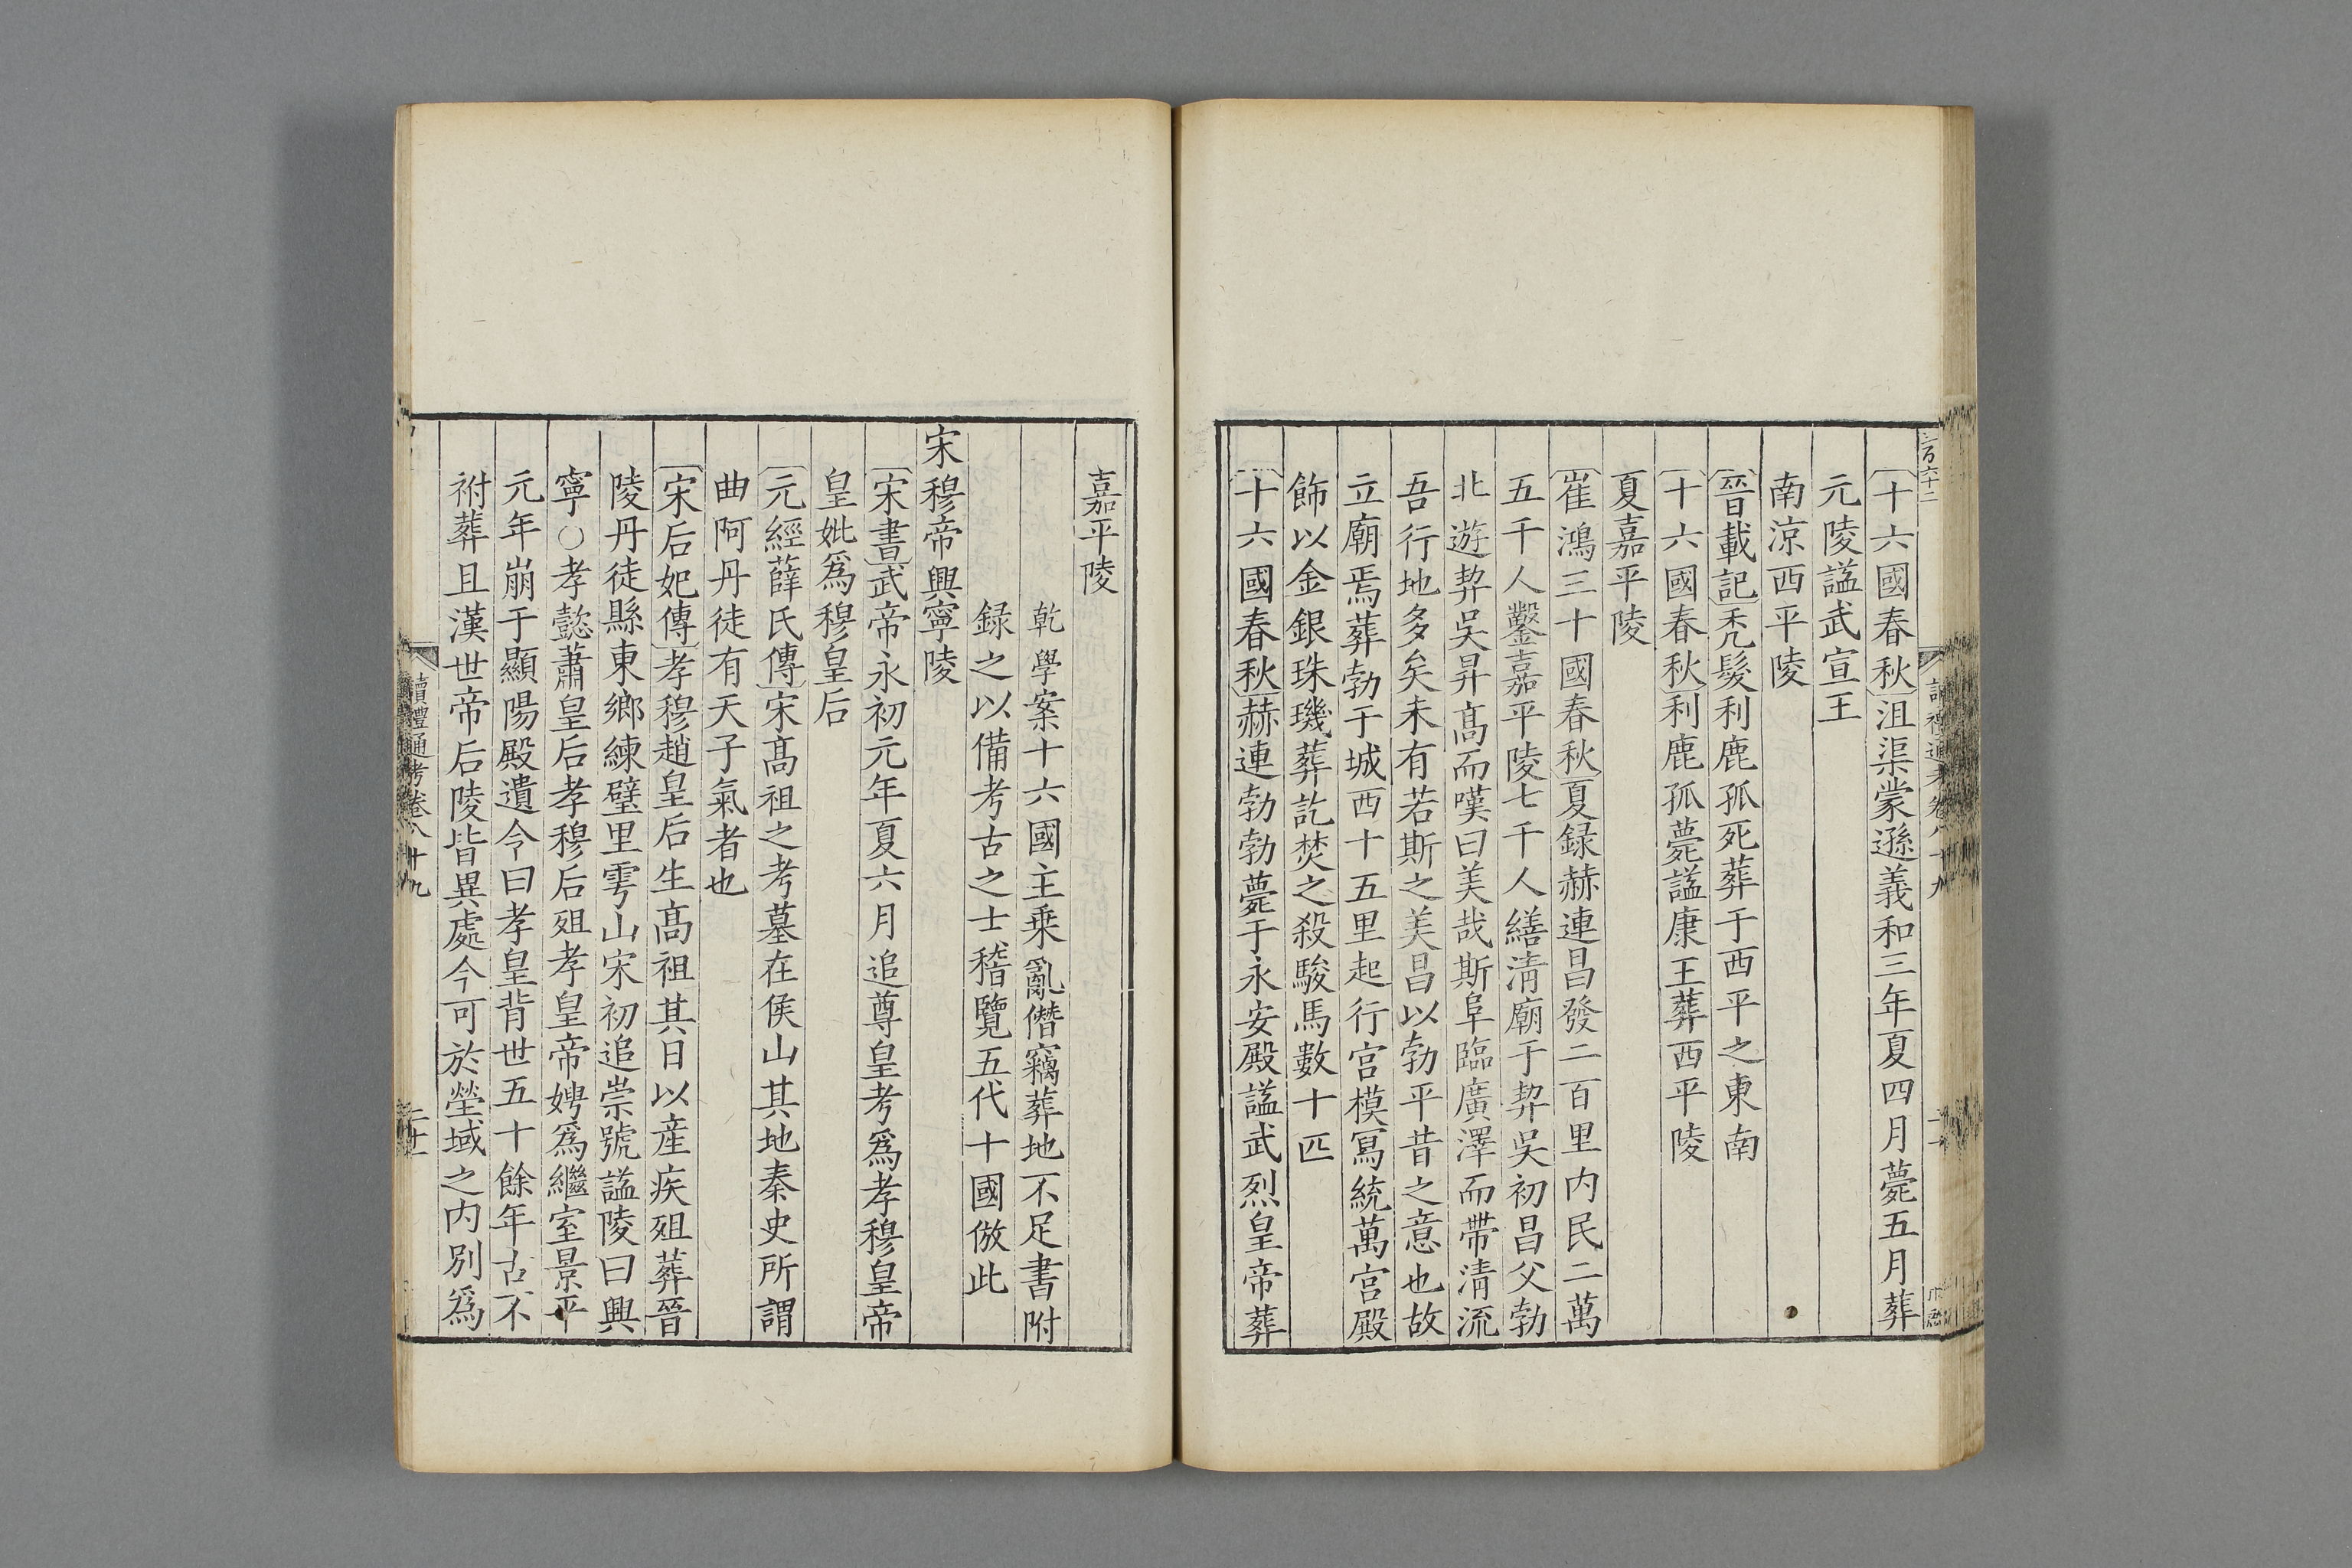 〔十六國春秋〕沮渠蒙遜義和三年夏四月薨五月葬
元陵謚武宣王
南涼西平陵
〔晉載記〕禿髮利鹿孤死葬于西平之東南
〔十六國春秋〕利鹿孤薨謚康王葬西平陵
夏嘉平陵
〔崔鴻三十國春秋〕夏録赫連昌發二百里内民二萬
五千人鑿嘉平陵七千人繕淸廟于契吳初昌父勃
北遊契吳昇髙而嘆曰美哉斯阜臨廣澤而帶淸流
吾行地多矣未有若斯之美昌以勃平昔之意也故
立廟焉葬勃于城西十五里起行宫模冩統萬宫殿
飾以金銀珠璣葬訖焚之殺駿馬數十匹
〔十六國春秋〕赫連勃勃薨于永安殿謚武烈皇帝葬
嘉平陵
乾學案十六國主乗亂僭竊葬地不足書附
録之以備考古之士稽覽五代十國倣此
宋穆帝興寧陵
〔宋書〕武帝永初元年夏六月追尊皇考爲孝穆皇帝
皇妣爲穆皇后
〔元經薛氏傳〕宋髙祖之考墓在侯山其地秦史所謂
曲阿丹徒有天子氣者也
〔宋后妃傳〕孝穆趙皇后生髙祖其日以産疾殂葬晉
陵丹徒縣東鄉練壁里雩山宋初追崇號謚陵曰興
寧○孝懿蕭皇后孝穆后殂孝皇帝娉爲繼室景平
元年崩于顯陽殿遺令曰孝皇背世五十餘年古不
祔葬且漢世帝后陵皆異處今可於塋域之内别爲
讀禮通考卷八十九